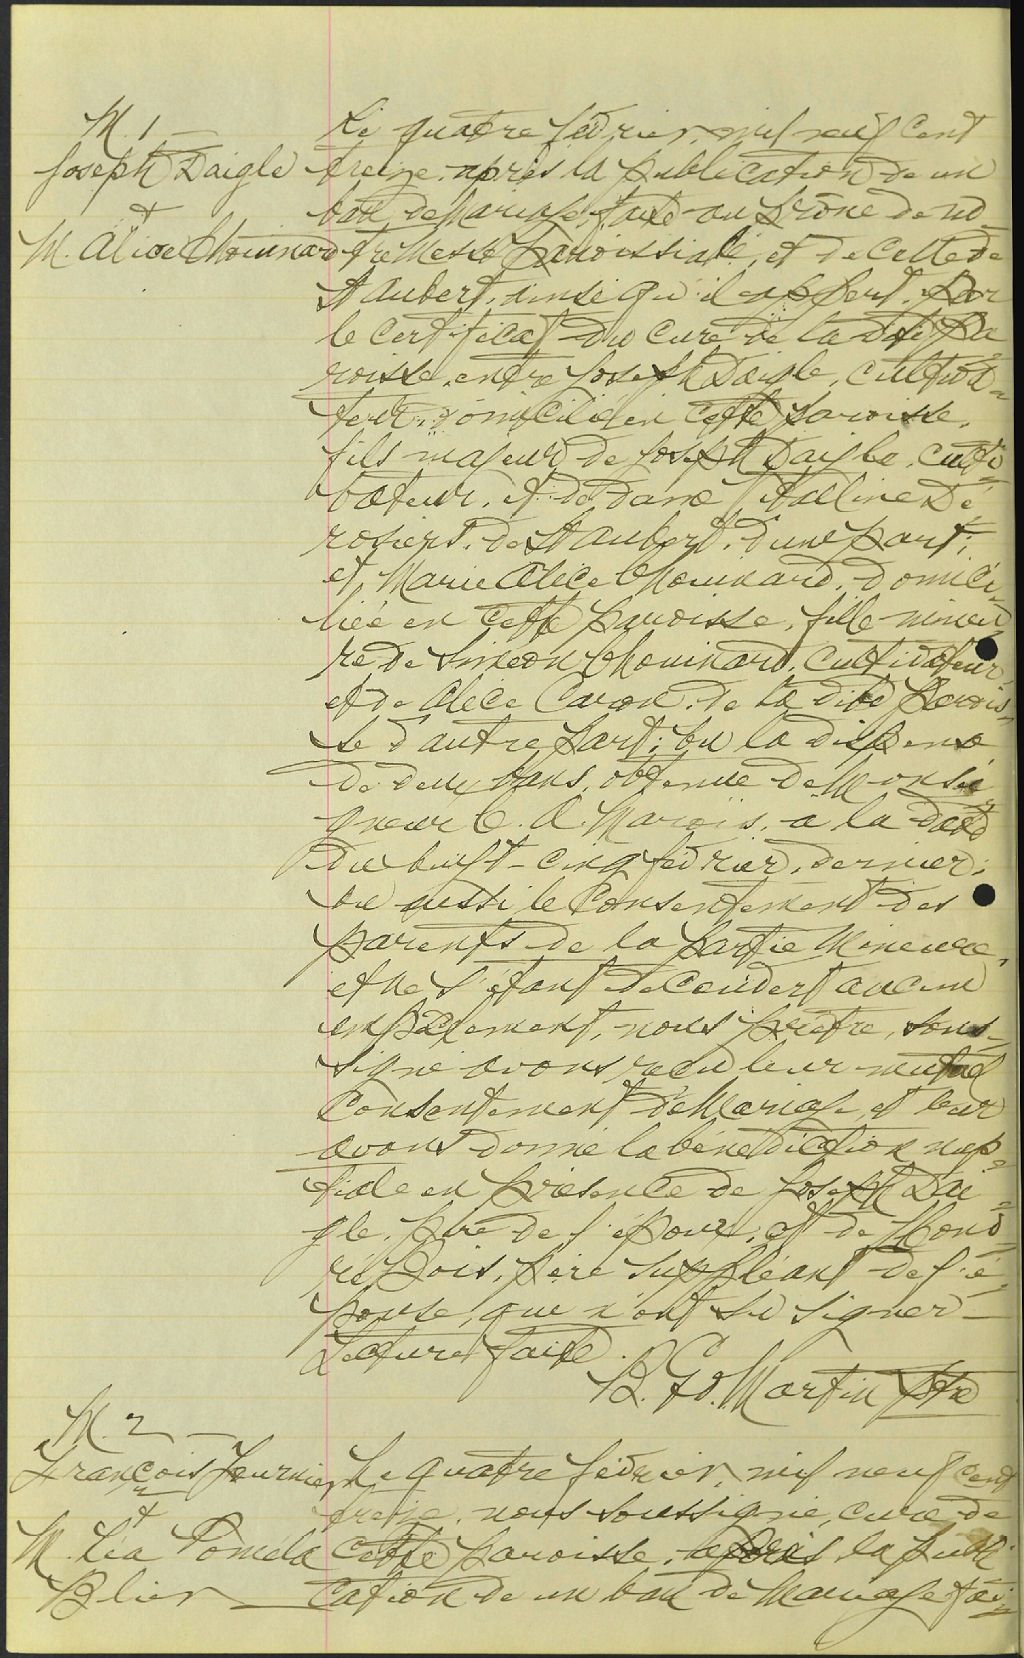 M. 1 —
Joseph Daigle
+
M. Alice Chouinard
Le quatre février, mil neuf cent
treize, après la publication de un
ban de Mariage faite au prône de no
tre Messe paroissiale, et de celle de
St Aubert, ainsi qu'il appert par
le certificat du curé de la dite pa
roisse, entre Joseph Daigle, cultiva=
teur, domicilié en cette paroisse,
fils majeur de Joseph Daigle, culti=
vateur, et de dame Dé
rosiers, de St Aubert, d'une part;
et, Marie Alice Chouinard, domici=
liée en cette paroisse, fille mineu
re de Simeon Chouinard, Cultivateur,
et de Alice Caron, de la dite parois=
se d'autre part; vu la dispense
de deux bans, obtenue de Monsei=
gneur C. A. Marois, à la date
du vingt-cinq février, dernier;
vu aussi le Consentement des
parents de la partie Mineure,
et ne s'étant découvert aucun
empêchement, nous prêtre, sous=
signé avons reçu leur mutuel
Consentement de Mariage, et leur
avons donné la bénédiction nup=
tiale en présence de Joseph Dai=
gle, père de l'époux, et de Hono=
ré Bois, père suppléant de l'é=
pouse, qui n'ont su signer —
Lecture faite.
B. Martin ptre
M. 2 —
François Fournier
+
M. Léa Poméla
Blier —
Le quatre février, mil neuf cent
treize, nous soussigné, curé de
cette paroisse, après la publi
cation de un ban de Mariage fai=